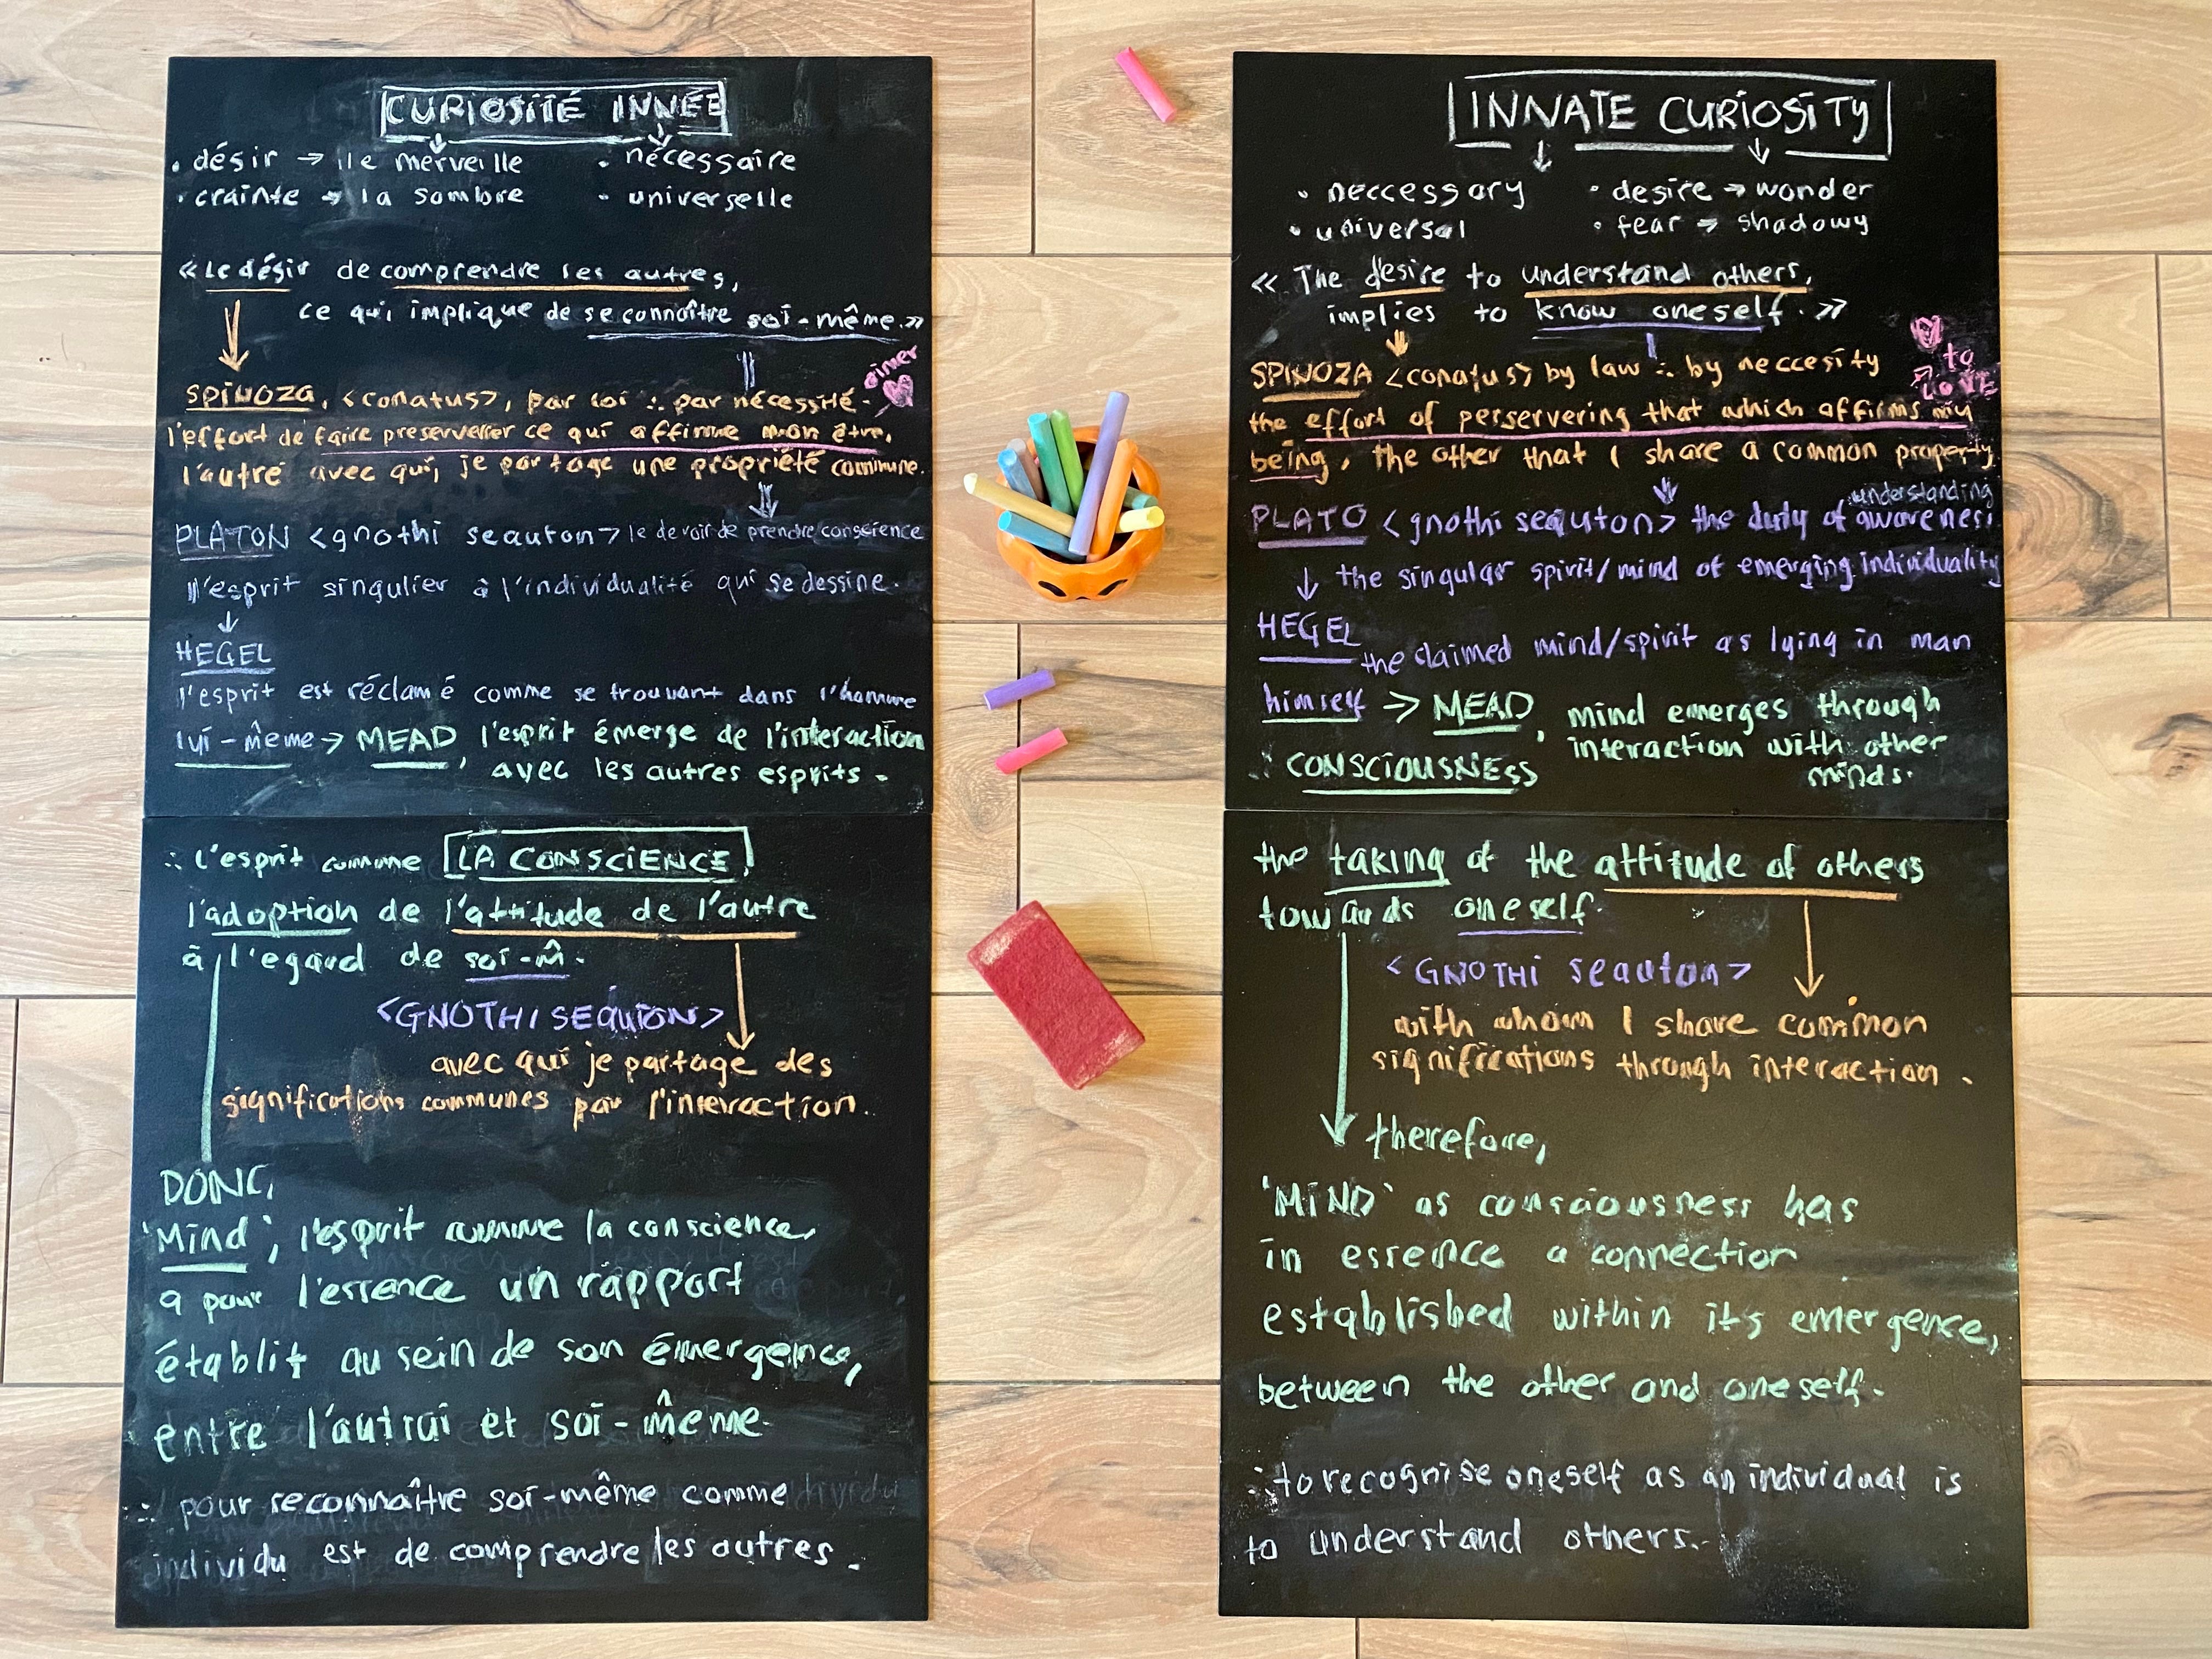 CURIOSITÉ INNÉE
. désir → le merveille . nécessaire
. crainte → la sombre - universelle
« Le désir de comprendre les autres,
ce qui, implique de se connaître soi-même. »
aimer
SPINOZA, <conatus>, par loi ∴ par nécessité -
l'effort de faire preserverer ce qui affirme mon être,
l'autre avec qui, je partage une propriété commune.
PLATON <gnothi seauton> le devoir de prendre conscience
l'esprit singulier à l'individualité qui se dessine.
HEGEL
l'esprit est réclamé comme se trouvant dans l'homme
lui-même → MEAD, l'esprit émerge de l'interaction
avec les autres esprits -
∴ L'esprit comme LA CONSCIENCE,
l'adoption de l'attitude de l'autre
à l'egard de soi-m̂.
<GNOTHI SEAUTON>
avec qui je partage des
significations communes par l'interaction.
DONC,
'Mind', l'esprit comme la conscience,
a pour l'essence un rapport
établit au sein de son émergence,
entre l'autrui et soi-même.
∴ pour reconnaître soi-même comme
individu est de comprendre les autres.
INNATE CURIOSITY
• neccessary • desire → wonder
• universal • fear → shadowy
« The desire to understand others,
implies to know oneself. »
SPINOZA <conatus> by law ∴ by neccesity
→ to LOVE
the effort of perservering that which affirms my
being, the other that I share a common property
understanding
PLATO <gnothi seauton> the duty of awareness.
↓ the singular spirit/mind of emerging individuality
HEGEL the claimed mind/spirit as lying in man
himself → MEAD, mind emerges through
interaction with other
minds.
∴ CONSCIOUSNESS
the taking of the attitude of others
towards oneself.
<GNOTHI seauton>
with whom I share common
significations through interaction.
therefore,
'MIND' as consciousness has
in essence a connection
established within its emergence,
between the other and oneself.
∴ to recognise oneself as an individual is
to understand others.